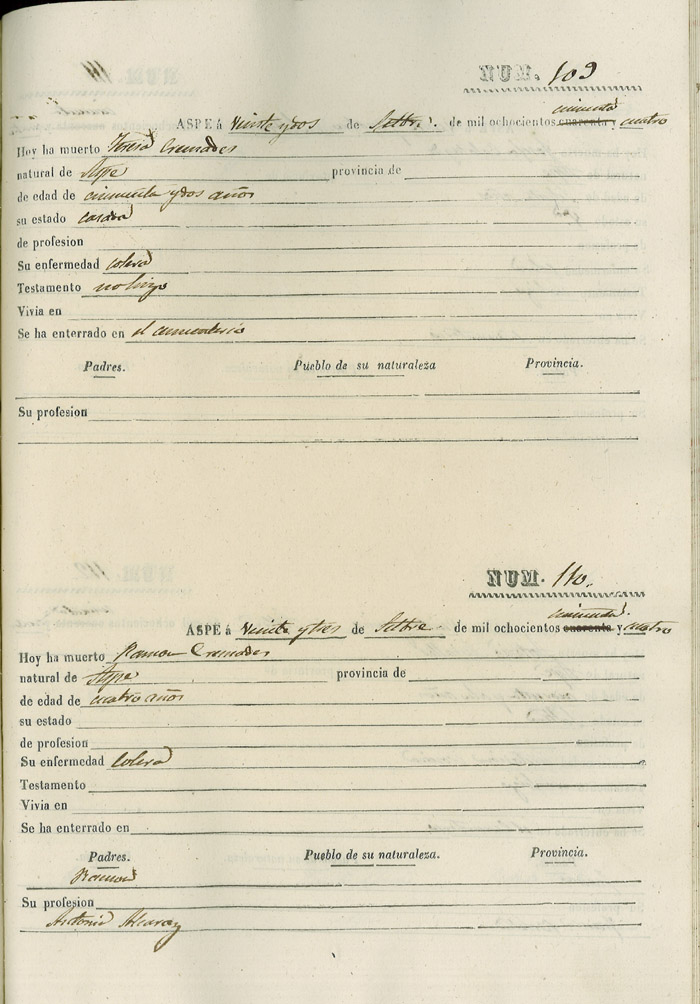 NUM. 109
cincuenta
ASPE á Veinte y dos de Setbre. de mil ochocientos cuarenta y cuatro
Hoy ha muerto Teresa Cremades
natural de Aspe provincia de
de edad de cincuenta y dos años
su estado casada
de profesion
Su enfermedad colera
Testamento no hizo
Vivia en
Se ha enterrado en el cementerio
Padres. Pueblo de su naturaleza Provincia.
Su profesion
NUM. 110.
cincuenta
ASPE á Veinte y tres de Setbre de mil ochocientos cuarenta y cuatro
Hoy ha muerto Ramon Cremades
natural de Aspe provincia de
de edad de cuatro años
su estado
de profesion
Su enfermedad Colera
Testamento
Vivia en
Se ha enterrado en
Padres. Pueblo de su naturaleza. Provincia.
Ramon
Su profesion
Antonia Alcaraz